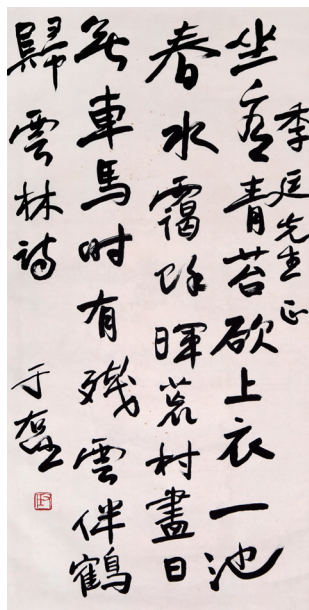 季廷先生正
坐看青苔欲上衣一池
春水靄餘暉荒村盡日
無車馬时有殘雲伴鶴
歸雲林詩
于右任